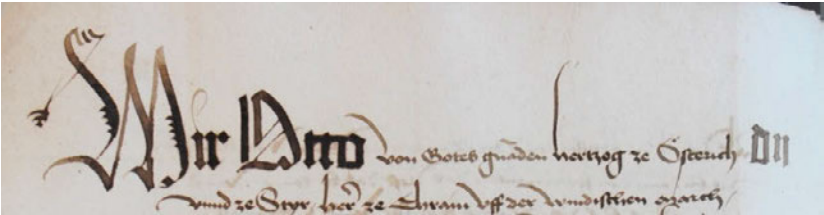 Wir Otto von Gotes gnaden hertzog ze Osterrich
vnnd ze Styr her ze Chrain vff der windischen March